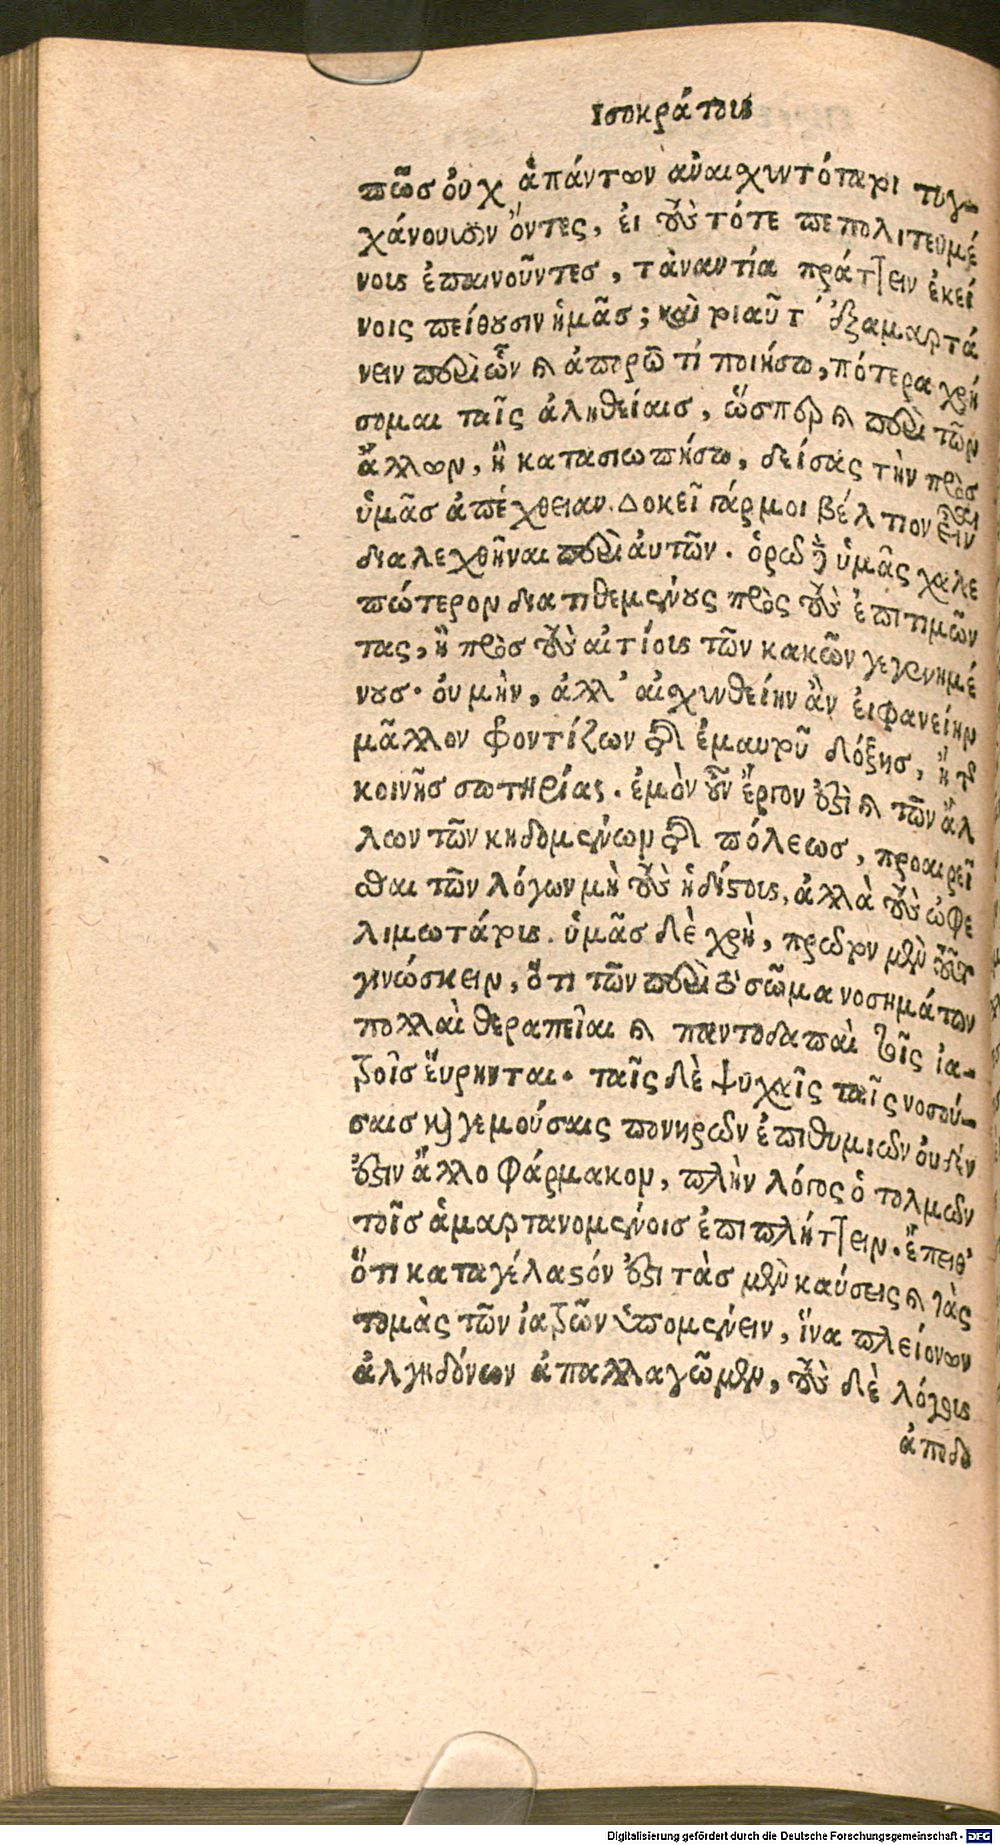 Ισοκράτους
πῶσ οὐχ ἁπάντων ἀναισχυντότατοι τυγ-
χάνουσιν ὄντες, εἰ τοὺς τότε πεπολιτευμέ
νους ἐπαινοῦντεσ, τἀναντία πράττειν ἐκεί
νοις πείθουσιν ἡμᾶσ; καὶ τοιαῦτ' ἐξαμαρτά
νειν περὶ ὧν καὶ ἀπορῶ τί ποιήσω, πότερα χρή
σομαι ταῖς ἀληθείαισ, ὥσπερ καὶ περὶ τῶν
ἄλλων, ἢ κατασιωπήσω, δείσας τὴν πρὸσ
ὑμᾶσ ἀπέχθειαν. Δοκεῖ γάρ μοι βέλτιον εἶναι
διαλεχθῆναι περὶ αὐτῶν. ὁρῶ δὲ ὑμᾶς χαλε
πώτερον διατιθεμένους πρὸς τοὺς ἐπιτιμῶν
τας, ἢ πρὸσ τοὺς αἰτίους τῶν κακῶν γεγενημέ
νουσ. οὐ μὴν, ἀλλ' αἰσχυνθείην ἂν εἰ φανείην
μᾶλλον φροντίζων τῆς ἐμαυτοῦ δόξησ, ἢ τῆς
κοινῆσ σωτηρίας. ἐμὸν οὖν ἔργον ἐστὶ καὶ τῶν ἄλ
λων τῶν κηδομένων τῆς πόλεωσ, προαιρεῖ
σθαι τῶν λόγων μὴ τοὺς ἡδίστους, ἀλλὰ τοὺς ὠφε
λιμωτάτους. ὑμᾶσ δὲ χρὴ, πρῶτον μὲν τοῦτο
γινώσκειν, ὅτι τῶν περὶ τὸ σῶμα νοσημάτων
πολλαὶ θεραπεῖαι καὶ παντοδαπαὶ τοῖς ἰα-
τροῖσ εὕρηνται. ταῖς δὲ ψυχαῖς ταῖς νοσού-
σαισ καὶ γεμούσαις πονηρῶν ἐπιθυμιῶν οὐδέν
ἐστιν ἄλλο φάρμακον, πλὴν λόγος ὁ τολμῶν
τοῖσ ἁμαρτανομένοισ ἐπιπλήττειν. ἔπειθ'
ὅτι καταγέλαστόν ἐστι τὰσ μὲν καύσεις καὶ τὰς
τομὰς τῶν ἰατρῶν ὑπομένειν, ἵνα πλειόνων
ἀλγηδόνων ἀπαλλαγῶμεν, τοὺς δὲ λόγους
ἀποδο
Digitalisierung gefördert durch die Deutsche Forschungsgemeinschaft - DFG